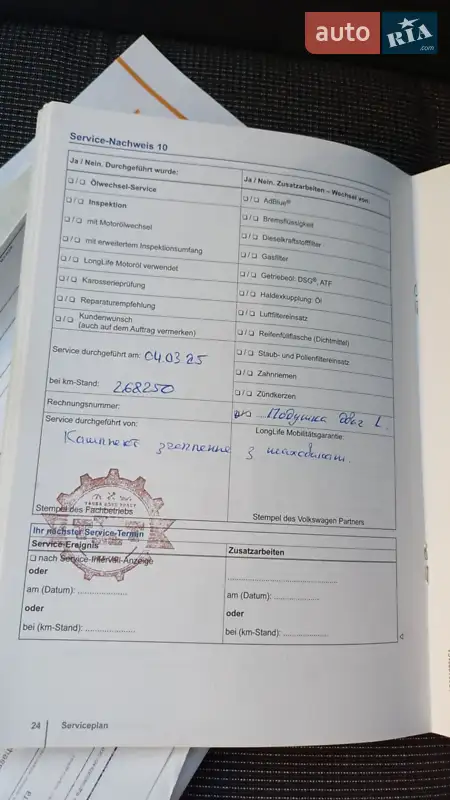 auto RIA.com
Service-Nachweis 10
Ja / Nein. Durchgeführt wurde:
❏ / ❏ Ölwechsel-Service
❏ / ❏ Inspektion
❏ / ❏ mit Motorölwechsel
❏ / ❏ mit erweitertem Inspektionsumfang
❏ / ❏ LongLife Motoröl verwendet
❏ / ❏ Karosserieprüfung
❏ / ❏ Reparaturempfehlung
❏ / ❏ Kundenwunsch
(auch auf dem Auftrag vermerken)
Service durchgeführt am: 04.03.25
bei km-Stand: 268250
Rechnungsnummer:
Service durchgeführt von:
Ja / Nein. Zusatzarbeiten – Wechsel von:
❏ / ❏ AdBlue®
❏ / ❏ Bremsflüssigkeit
❏ / ❏ Dieselkraftstofffilter
❏ / ❏ Gasfilter
❏ / ❏ Getriebeöl: DSG®, ATF
❏ / ❏ Haldexkupplung: Öl
❏ / ❏ Luftfiltereinsatz
❏ / ❏ Reifenfüllflasche (Dichtmittel)
❏ / ❏ Staub- und Pollenfiltereinsatz
❏ / ❏ Zahnriemen
❏ / ❏ Zündkerzen
❏ / ❏ Подушка двиг L.
LongLife Mobilitätsgarantie:
Комплект зчеплення з
Stempel des Fachbetriebs
Stempel des Volkswagen Partners
Ihr nächster Service-Termin
Service-Ereignis
❏ nach Service-Intervall-Anzeige
oder
am (Datum): ....................
oder
bei (km-Stand): ....................
Zusatzarbeiten
..............................
am (Datum): ....................
oder
bei (km-Stand): ....................
24 Serviceplan